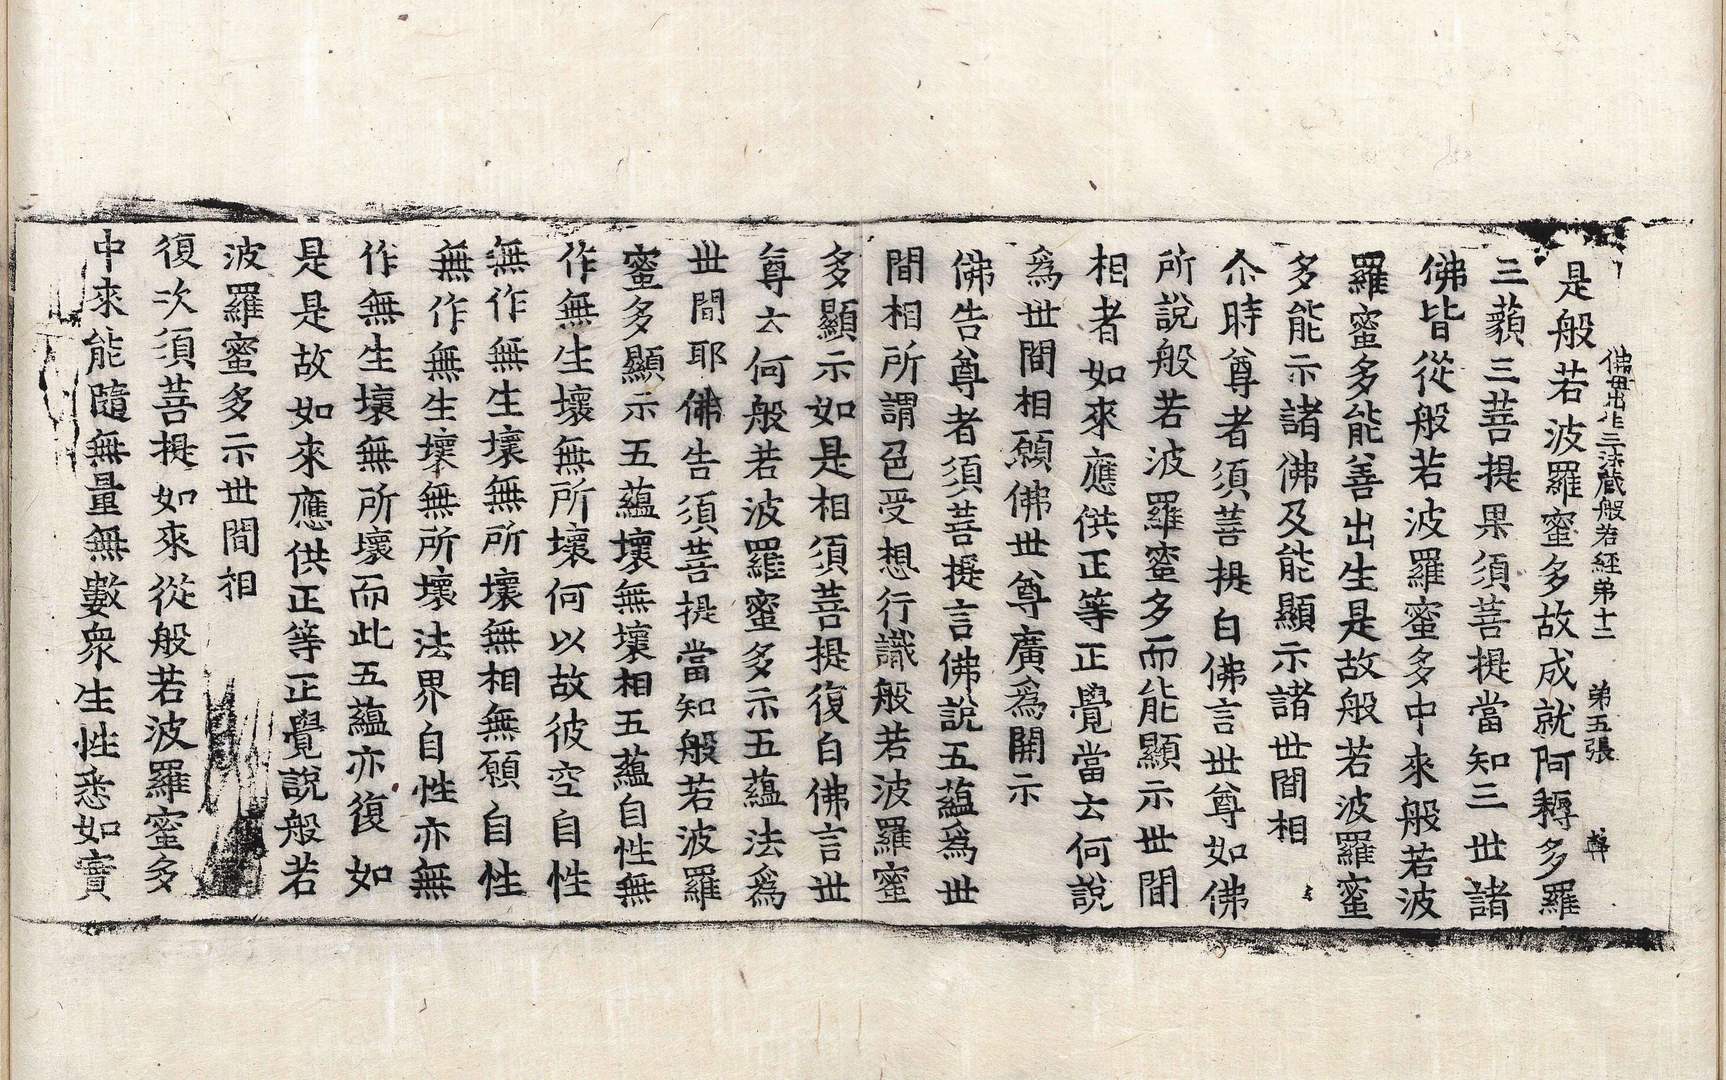 佛母出生三法藏般若經第十二　第五張
是般若波羅蜜多故成就阿耨多羅
三藐三菩提果須菩提當知三世諸
佛皆從般若波羅蜜多中來般若波
羅蜜多能善出生是故般若波羅蜜
多能示諸佛及能顯示諸世間相
尒時尊者須菩提白佛言世尊如佛
所說般若波羅蜜多而能顯示世間
相者如來應供正等正覺當云何說
爲世間相願佛世尊廣爲開示
佛告尊者須菩提言佛說五蘊爲世
間相所謂色受想行識般若波羅蜜
多顯示如是相須菩提復白佛言世
尊云何般若波羅蜜多示五蘊法爲
世間耶佛告須菩提當知般若波羅
蜜多顯示五蘊壞無壞相五蘊自性無
作無生壞無所壞何以故彼空自性
無作無生壞無所壞無相無願自性
無作無生壞無所壞法界自性亦無
作無生壞無所壞而此五蘊亦復如
是是故如來應供正等正覺說般若
波羅蜜多示世間相
復次須菩提如來從般若波羅蜜多
中來能隨無量無數衆生性悉如實